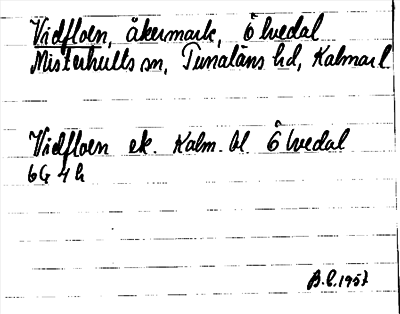 Vidfloen, åkermark, Ölvedal
Misterhults sn, Tunaläns hd, Kalmar l
Vidfloen ek. Kalm. bl. Ölvedal
6G 4h
B.E. 1957